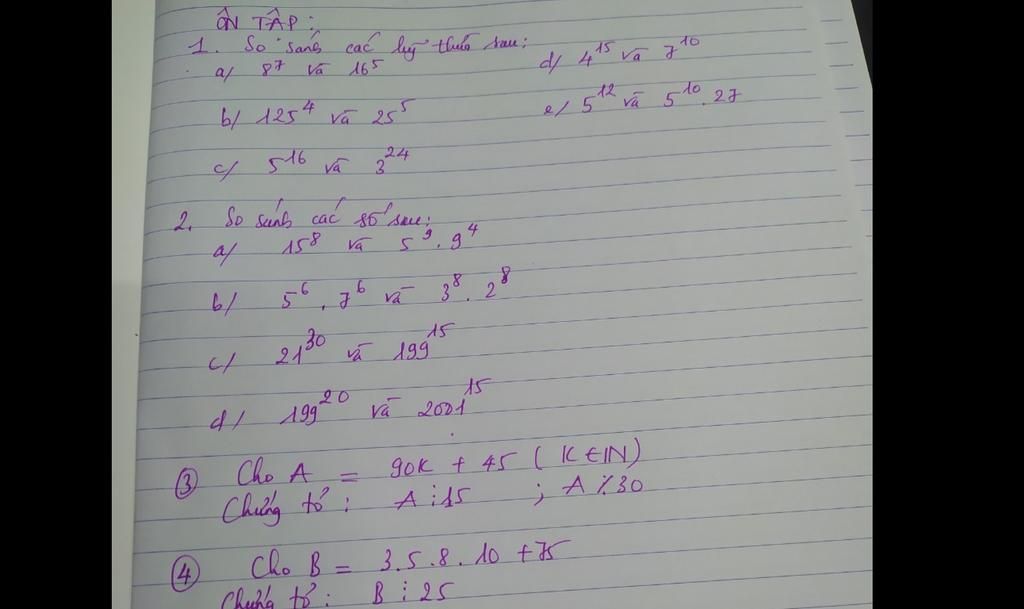 ÔN TẬP:
1. So sánh các luỹ thừa sau:
a/ 8⁷ và 16⁵
d/ 4¹⁵ và 7¹⁰
b/ 125⁴ và 25⁵
e/ 5¹² và 5¹⁰. 27
c/ 5¹⁶ và 3²⁴
2. So sánh các số sau:
a/ 15⁸ và 5⁹. 9⁴
b/ 5⁶. 7⁶ và 3⁸. 2⁸
c/ 21³⁰ và 199¹⁵
d/ 199²⁰ và 2001¹⁵
③ Cho A = 90K + 45 (K ∈ IN)
Chứng tỏ: A ⋮ 15 ; A ⋮̸ 30
④ Cho B = 3.5.8.10 + 75
Chứng tỏ: B ⋮ 25